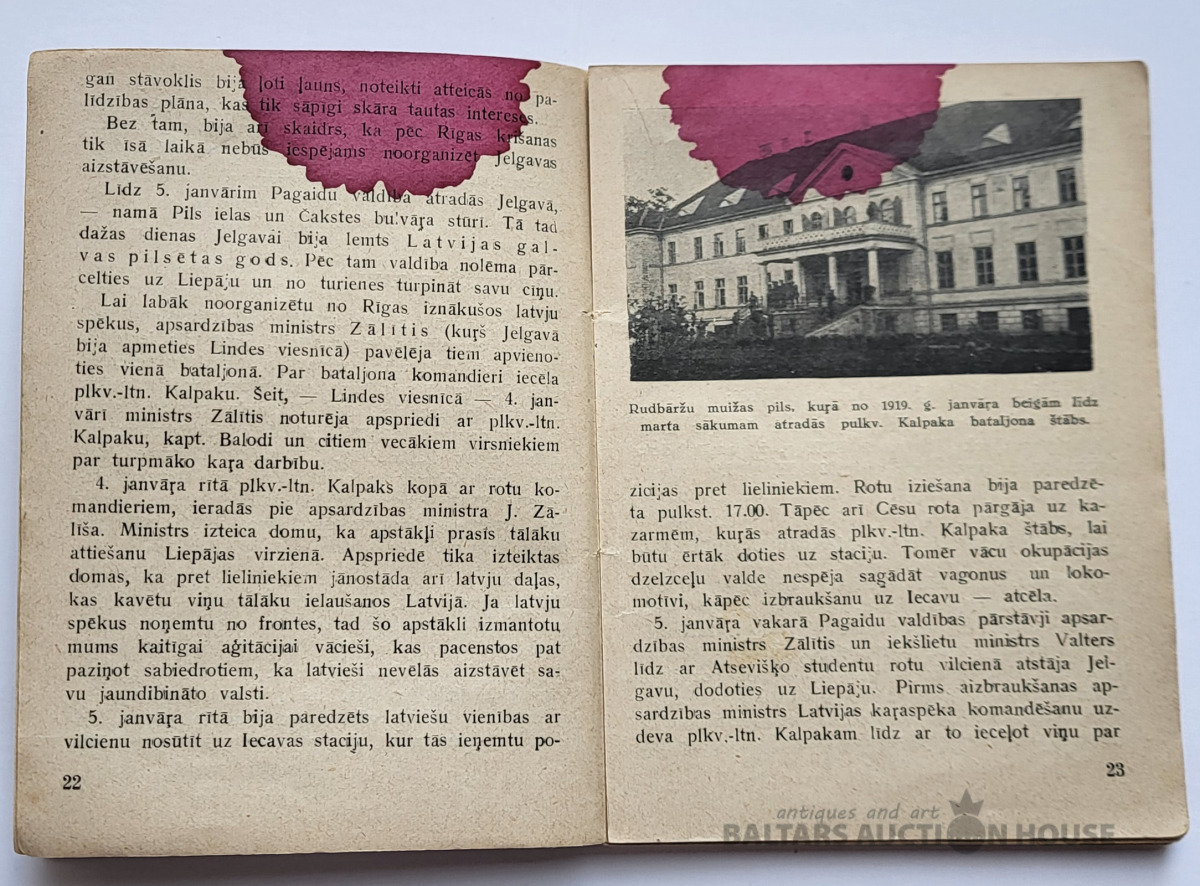 gan stāvoklis bija ļoti ļauns, noteikti atteicās no pa-
līdzības plāna, kas tik sāpīgi skāra tautas intereses.
Bez tam, bija arī skaidrs, ka pēc Rīgas krišanas
tik īsā laikā nebūs iespējams noorganizēt Jelgavas
aizstāvēšanu.
Līdz 5. janvārim Pagaidu valdība atradās Jelgavā,
— namā Pils ielas un Čakstes bu!vāra stūrī. Tā tad
dažas dienas Jelgavai bija lemts Latvijas gal-
vas pilsētas gods. Pēc tam valdība nolēma pār-
celties uz Liepāju un no turienes turpināt savu cīņu.
Lai labāk noorganizētu no Rīgas iznākušos latvju
spēkus, apsardzības ministrs Zālītis (kuŗš Jelgavā
bija apmeties Lindes viesnīcā) pavēlēja tiem apvieno-
ties vienā bataljonā. Par bataljona komandieri iecēla
plkv.-ltn. Kalpaku. Šeit, — Lindes viesnīcā — 4. jan-
vārī ministrs Zālītis noturēja apspriedi ar plkv.-ltn.
Kalpaku, kapt. Balodi un citiem vecākiem virsniekiem
par turpmāko kaŗa darbību.
4. janvāŗa rītā plkv.-ltn. Kalpaks kopā ar rotu ko-
mandieriem, ieradās pie apsardzības ministra J. Zā-
līša. Ministrs izteica domu, ka apstākļi prasīs tālāku
attiešanu Liepājas virzienā. Apspriedē tika izteiktas
domas, ka pret lieliniekiem jānostāda arī latvju daļas,
kas kavētu viņu tālāku ielaušanos Latvijā. Ja latvju
spēkus noņemtu no frontes, tad šo apstākli izmantotu
mums kaitīgai aģitācijai vācieši, kas pacenstos pat
paziņot sabiedrotiem, ka latvieši nevēlās aizstāvēt sa-
vu jaundibināto valsti.
5. janvāŗa rītā bija paredzēts latviešu vienības ar
vilcienu nosūtīt uz Iecavas staciju, kur tās ieņemtu po-
22
Rudbāržu muižas pils, kuŗā no 1919. g. janvāŗa beigām līdz
marta sākumam atradās pulkv. Kalpaka bataljona štābs.
zicijas pret lieliniekiem. Rotu iziešana bija paredzē-
ta pulkst. 17.00. Tāpēc arī Cēsu rota pārgāja uz ka-
zarmēm, kuŗās atradās plkv.-ltn. Kalpaka štābs, lai
būtu ērtāk doties uz staciju. Tomēr vācu okupācijas
dzelzceļu valde nespēja sagādāt vagonus un loko-
motīvi, kāpēc izbraukšanu uz Iecavu — atcēla.
5. janvāŗa vakarā Pagaidu valdības pārstāvji apsar-
dzības ministrs Zālītis un iekšlietu ministrs Valters
līdz ar Atsevišķo studentu rotu vilcienā atstāja Jel-
gavu, dodoties uz Liepāju. Pirms aizbraukšanas ap-
sardzības ministrs Latvijas kaŗaspēka komandēšanu uz-
deva plkv.-ltn. Kalpakam līdz ar to ieceļot viņu par
23
antiques and art
BALTARS AUCTION HOUSE